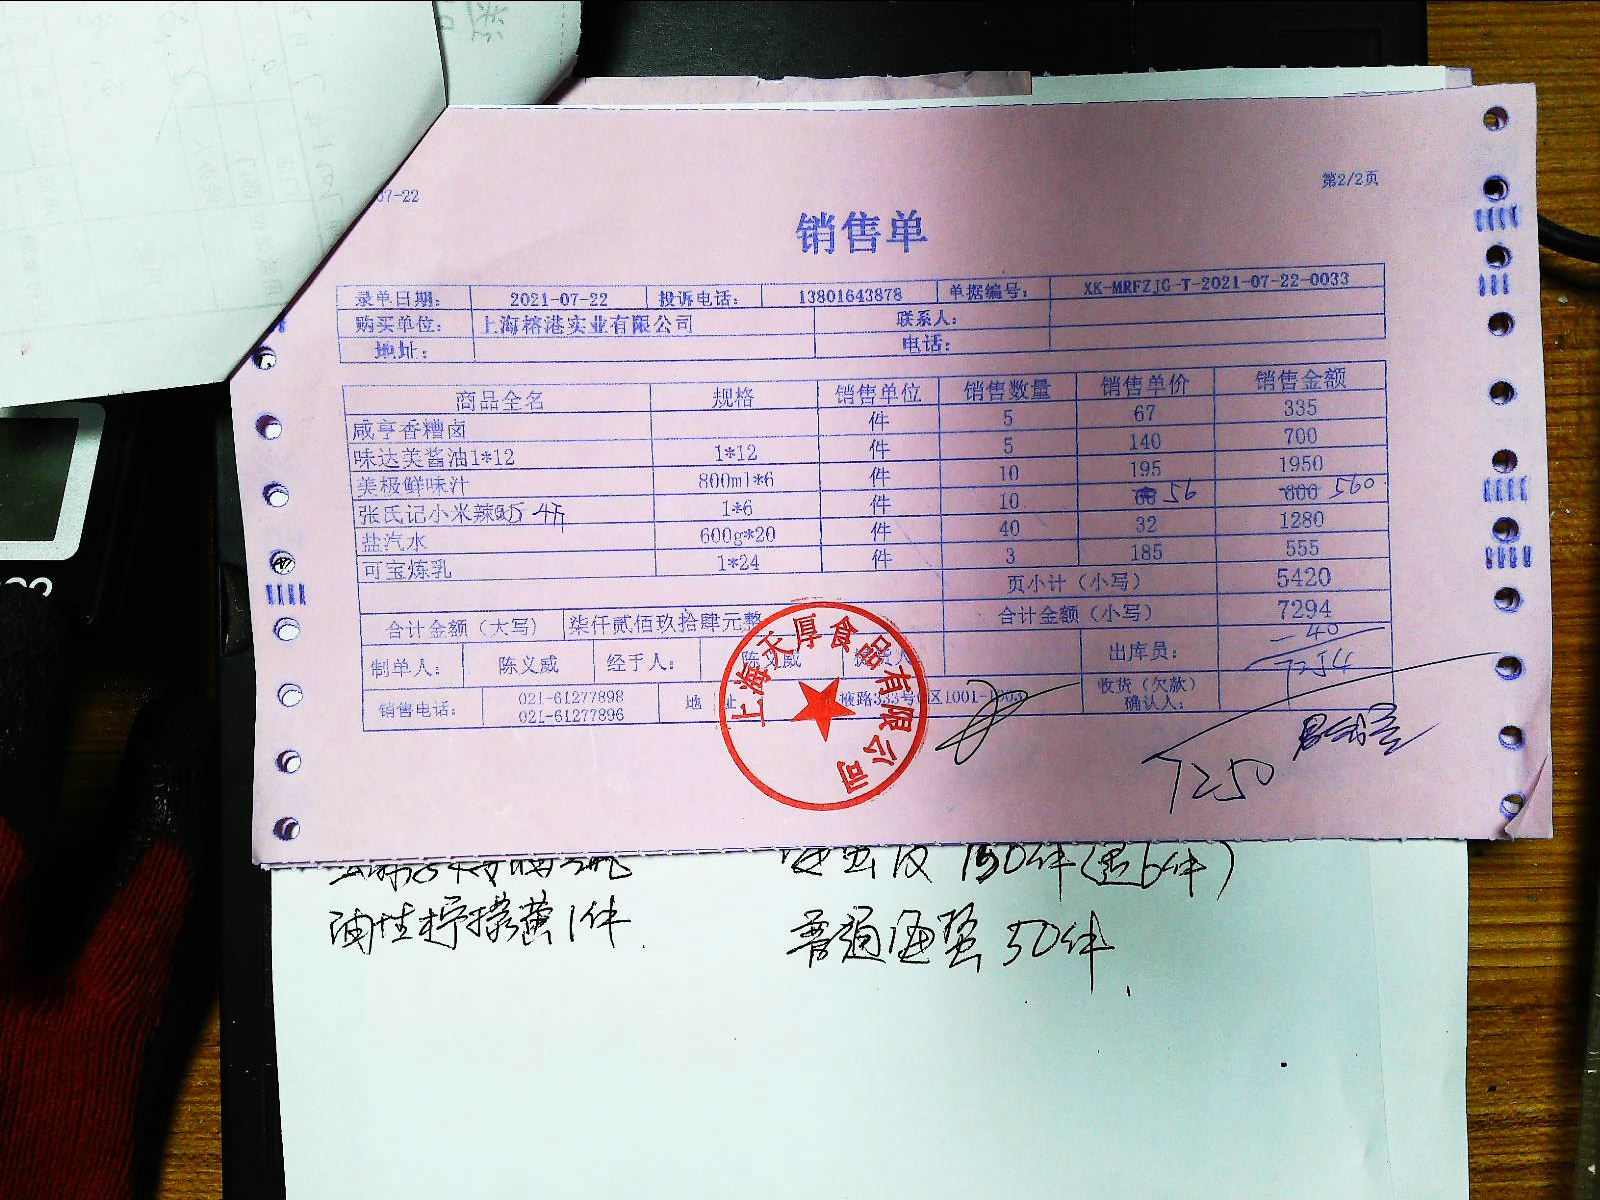 07-22
第2/2页
销售单
录单日期： 2021-07-22 投诉电话： 13801643878 单据编号： XK-MRFZJG-T-2021-07-22-0033
购买单位： 上海榕港实业有限公司 联系人：
地址： 电话：
商品全名 规格 销售单位 销售数量 销售单价 销售金额
咸亨香糟卤 件 5 67 335
味达美酱油1*12 1*12 件 5 140 700
美极鲜味汁 800ml*6 件 10 195 1950
张氏记小米辣 1*6 件 10 60 56 600 560
盐汽水 600g*20 件 40 32 1280
可宝炼乳 1*24 件 3 185 555
页小计（小写） 5420
合计金额（大写） 柒仟贰佰玖拾肆元整 合计金额（小写） 7294
-40
制单人： 陈义威 经手人： 陈义威 出库员： 7254
销售电话： 021-61277898 地 址 收货（欠款）
021-61277896 确认人：
上海天厚食品有限公司
7250
150件(退6件)
油性柠檬黄1件 普通海蛋50件